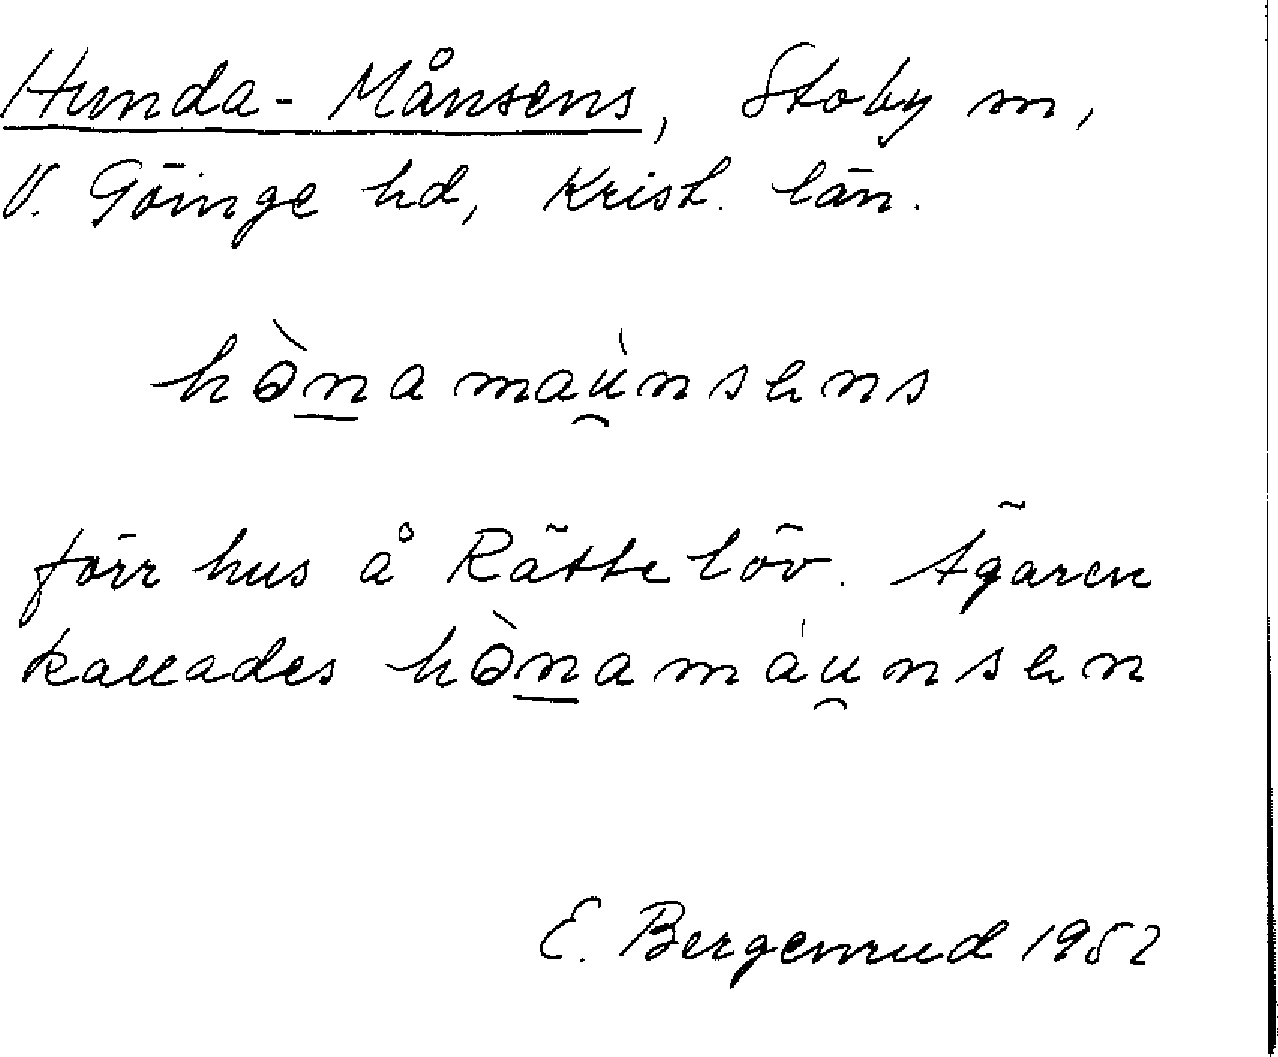 Hunda-Månsens, Stoby sn,
V. Göinge hd, Krist. län.
hə̀n̲amaù̯nsəns
förr hus å Rättelöv. Ägaren
kallades hə̀n̲amàu̯nsən
E. Bergenrud 1952